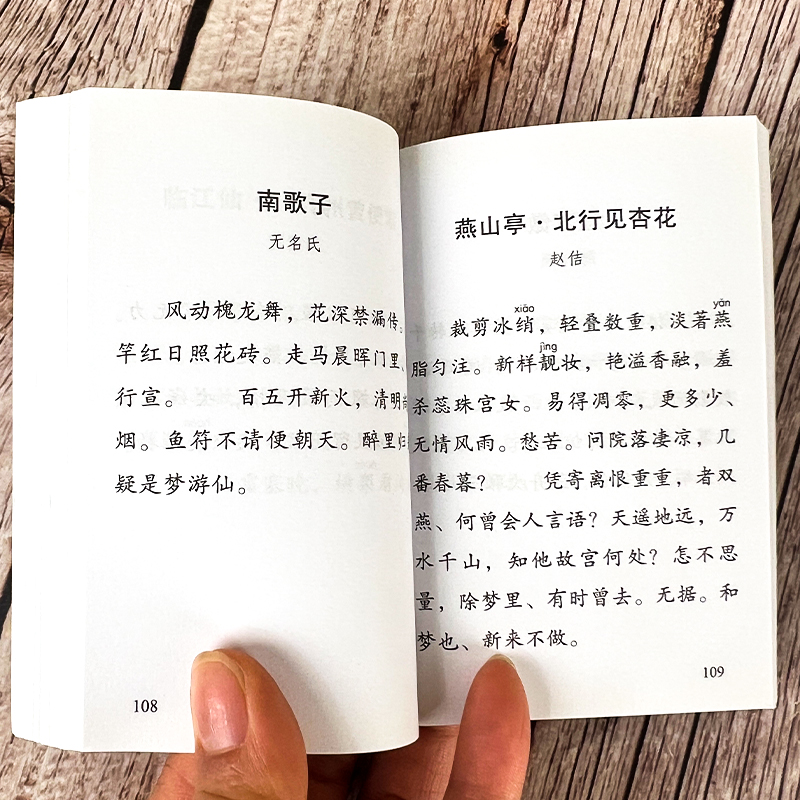 南歌子
无名氏
风动槐龙舞，花深禁漏传。
竿红日照花砖。走马晨晖门里、
行宣。 百五开新火，清明
烟。鱼符不请便朝天。醉里归
疑是梦游仙。
108
燕山亭·北行见杏花
赵佶
xiāo yān
裁剪冰绡，轻叠数重，淡著燕
jìng
脂匀注。新样靓妆，艳溢香融，羞
杀蕊珠宫女。易得凋零，更多少、
无情风雨。愁苦。问院落凄凉，几
番春暮？ 凭寄离恨重重，者双
燕、何曾会人言语？天遥地远，万
水千山，知他故宫何处？怎不思
量，除梦里、有时曾去。无据。和
梦也、新来不做。
109